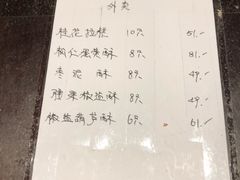 外卖
桂花拉糕 10只 51.-
枸仁蛋黄酥 8只 81.-
枣泥酥 8只 49.-
腰果椒盐酥 8只 49.-
椒盐葫芦酥 6只 61.-